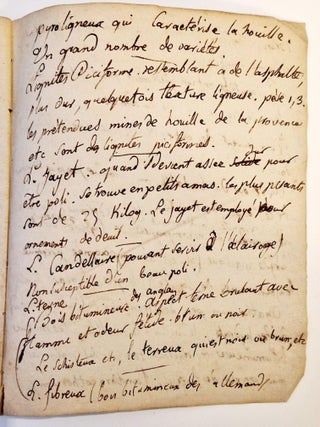 pyroligneux qui caractérise la houille.
Un grand nombre de variétés
Lignites Piciforme. ressemblant à de l'asphalte,
plus dur quelquefois texture ligneuse. pèse 1,3.
les prétendues mines de houille de la provence
etc sont des lignites piciformes.
L. Jayet. quand il devant assez solide dur pour
être poli. se trouve en petits amas. les plus pesants
sont de 25 Kilog. Le jayet est employé pour
ornements de deuil.
L. Candellaire (pouvant servir à l'éclairage)
Non susceptible d'un beau poli.
L. terne
(Bois bitumineux des anglais) aspect terne brulant avec
flamme et odeur fétide. brun ou noir.
Le schisteux et, le terreux qui est noir ou brun, etc
L. fibreux (bois bitumineux des allemand)